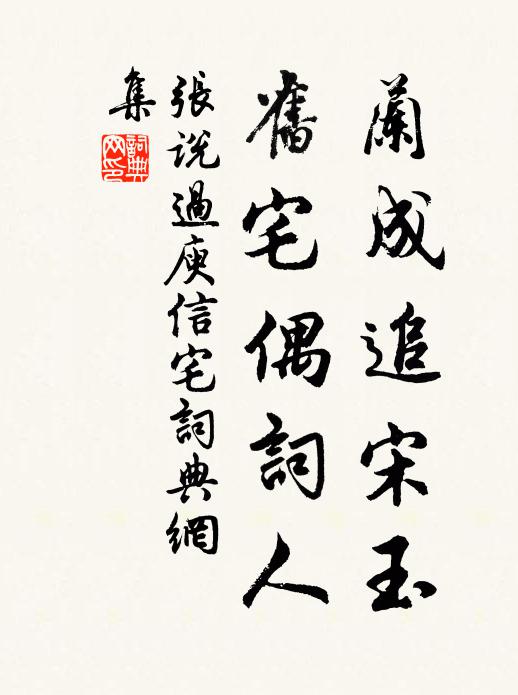 蘭成追宋玉
舊宅偶詞人
張說過庾信宅詞典網
集
詞典網印